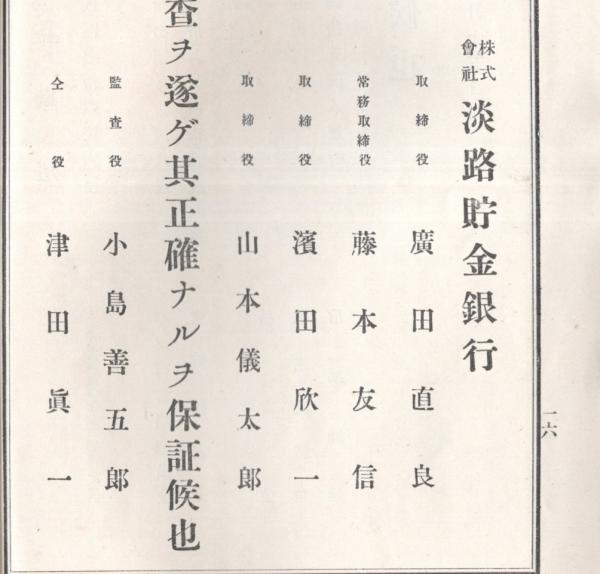 株式會社 淡路貯金銀行
取締役 廣田直良
常務取締役 藤本友信
取締役 濱田欣一
取締役 山本儀太郎
査ヲ遂ゲ其正確ナルヲ保証候也
監査役 小島善五郎
仝役 津田眞一
一六